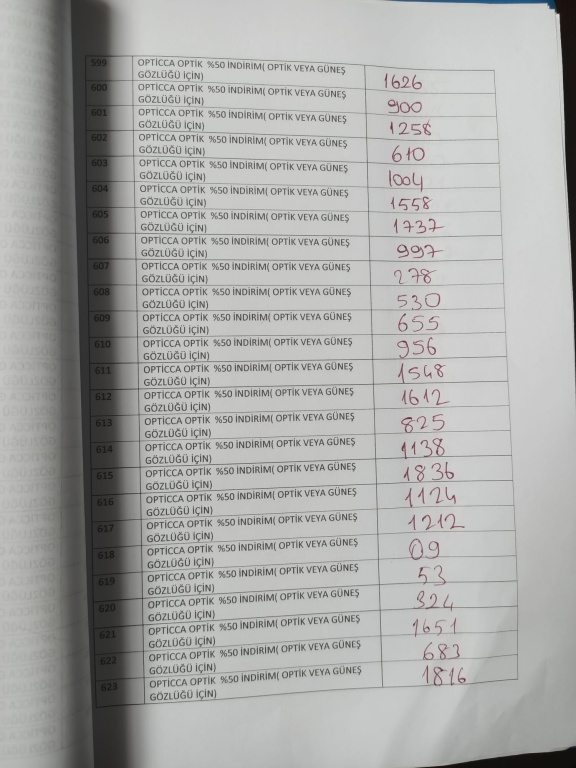 599 OPTİCCA OPTİK %50 İNDİRİM( OPTİK VEYA GÜNEŞ
GÖZLÜĞÜ İÇİN) 1626
600 OPTİCCA OPTİK %50 İNDİRİM( OPTİK VEYA GÜNEŞ
GÖZLÜĞÜ İÇİN) 900
601 OPTİCCA OPTİK %50 İNDİRİM( OPTİK VEYA GÜNEŞ
GÖZLÜĞÜ İÇİN) 1258
602 OPTİCCA OPTİK %50 İNDİRİM( OPTİK VEYA GÜNEŞ
GÖZLÜĞÜ İÇİN) 610
603 OPTİCCA OPTİK %50 İNDİRİM( OPTİK VEYA GÜNEŞ
GÖZLÜĞÜ İÇİN) 1004
604 OPTİCCA OPTİK %50 İNDİRİM( OPTİK VEYA GÜNEŞ
GÖZLÜĞÜ İÇİN) 1558
605 OPTİCCA OPTİK %50 İNDİRİM( OPTİK VEYA GÜNEŞ
GÖZLÜĞÜ İÇİN) 1737
606 OPTİCCA OPTİK %50 İNDİRİM( OPTİK VEYA GÜNEŞ
GÖZLÜĞÜ İÇİN) 997
607 OPTİCCA OPTİK %50 İNDİRİM( OPTİK VEYA GÜNEŞ
GÖZLÜĞÜ İÇİN) 278
608 OPTİCCA OPTİK %50 İNDİRİM( OPTİK VEYA GÜNEŞ
GÖZLÜĞÜ İÇİN) 530
609 OPTİCCA OPTİK %50 İNDİRİM( OPTİK VEYA GÜNEŞ
GÖZLÜĞÜ İÇİN) 655
610 OPTİCCA OPTİK %50 İNDİRİM( OPTİK VEYA GÜNEŞ
GÖZLÜĞÜ İÇİN) 956
611 OPTİCCA OPTİK %50 İNDİRİM( OPTİK VEYA GÜNEŞ
GÖZLÜĞÜ İÇİN) 1548
612 OPTİCCA OPTİK %50 İNDİRİM( OPTİK VEYA GÜNEŞ
GÖZLÜĞÜ İÇİN) 1612
613 OPTİCCA OPTİK %50 İNDİRİM( OPTİK VEYA GÜNEŞ
GÖZLÜĞÜ İÇİN) 825
614 OPTİCCA OPTİK %50 İNDİRİM( OPTİK VEYA GÜNEŞ
GÖZLÜĞÜ İÇİN) 1138
615 OPTİCCA OPTİK %50 İNDİRİM( OPTİK VEYA GÜNEŞ
GÖZLÜĞÜ İÇİN) 1836
616 OPTİCCA OPTİK %50 İNDİRİM( OPTİK VEYA GÜNEŞ
GÖZLÜĞÜ İÇİN) 1124
617 OPTİCCA OPTİK %50 İNDİRİM( OPTİK VEYA GÜNEŞ
GÖZLÜĞÜ İÇİN) 1212
618 OPTİCCA OPTİK %50 İNDİRİM( OPTİK VEYA GÜNEŞ
GÖZLÜĞÜ İÇİN) 09
619 OPTİCCA OPTİK %50 İNDİRİM( OPTİK VEYA GÜNEŞ
GÖZLÜĞÜ İÇİN) 53
620 OPTİCCA OPTİK %50 İNDİRİM( OPTİK VEYA GÜNEŞ
GÖZLÜĞÜ İÇİN) 324
621 OPTİCCA OPTİK %50 İNDİRİM( OPTİK VEYA GÜNEŞ
GÖZLÜĞÜ İÇİN) 1651
622 OPTİCCA OPTİK %50 İNDİRİM( OPTİK VEYA GÜNEŞ
GÖZLÜĞÜ İÇİN) 683
623 OPTİCCA OPTİK %50 İNDİRİM( OPTİK VEYA GÜNEŞ
GÖZLÜĞÜ İÇİN) 1816